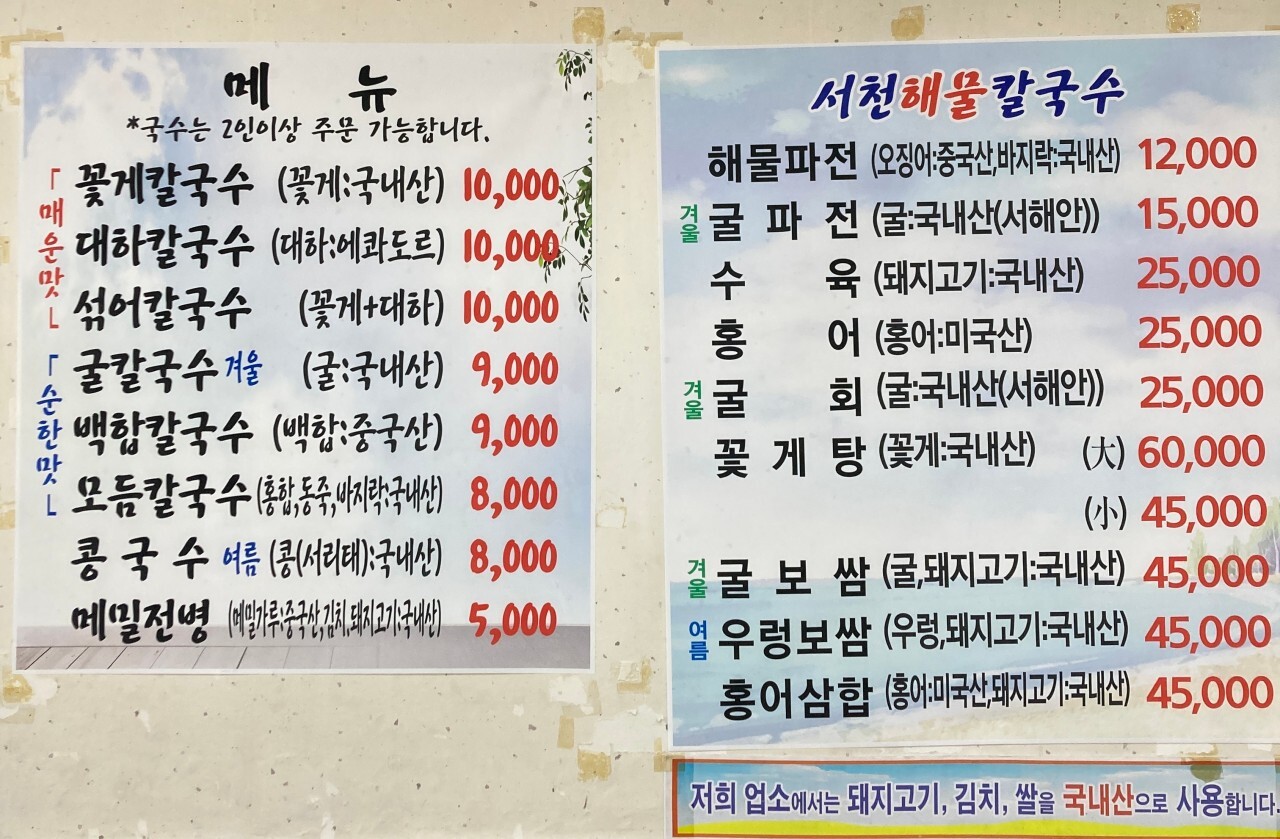 메 뉴
*국수는 2인이상 주문 가능합니다.
「매운맛」
꽃게칼국수 (꽃게:국내산) 10,000
대하칼국수 (대하:에콰도르) 10,000
섞어칼국수 (꽃게+대하) 10,000
「순한맛」
굴칼국수 겨울 (굴:국내산) 9,000
백합칼국수 (백합:중국산) 9,000
모듬칼국수 (홍합,동죽,바지락:국내산) 8,000
콩국수 여름 (콩(서리태):국내산) 8,000
메밀전병 (메밀가루:중국산,김치,돼지고기:국내산) 5,000
서천해물칼국수
해물파전 (오징어:중국산,바지락:국내산) 12,000
겨울 굴파전 (굴:국내산(서해안)) 15,000
수육 (돼지고기:국내산) 25,000
홍어 (홍어:미국산) 25,000
겨울 굴회 (굴:국내산(서해안)) 25,000
꽃게탕 (꽃게:국내산) (大) 60,000
(小) 45,000
겨울 굴보쌈 (굴,돼지고기:국내산) 45,000
여름 우렁보쌈 (우렁,돼지고기:국내산) 45,000
홍어삼합 (홍어:미국산,돼지고기:국내산) 45,000
저희 업소에서는 돼지고기, 김치, 쌀을 국내산으로 사용합니다.